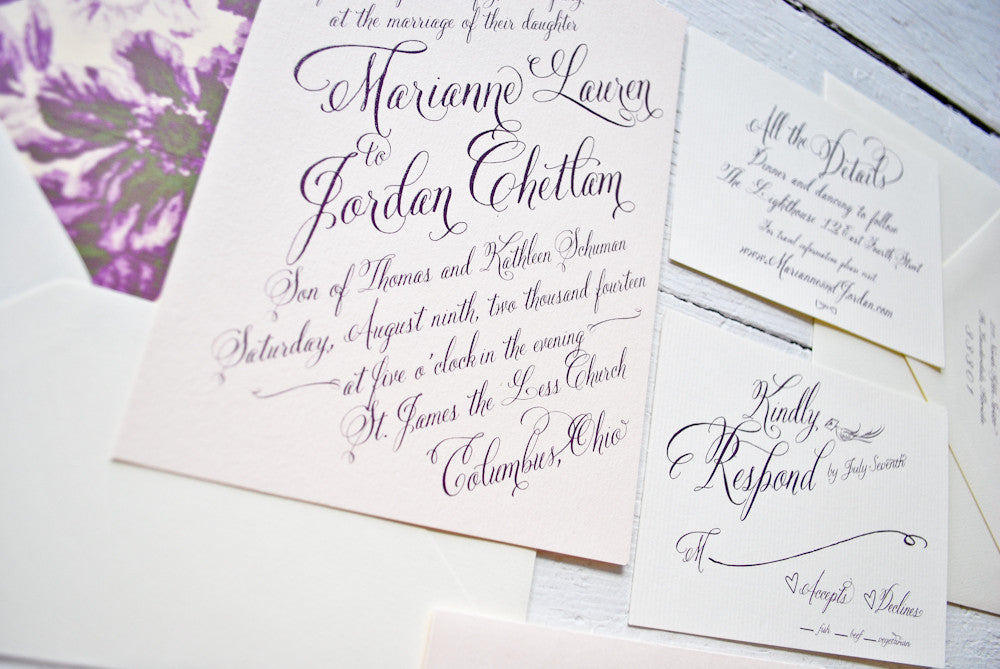 at the marriage of their daughter
Marianne Lauren
to
Jordan Chettam
Son of Thomas and Kathleen Schuman
Saturday, August ninth, two thousand fourteen
at five o'clock in the evening
St. James the Less Church
Columbus, Ohio
All the Details
Dinner and dancing to follow
The Lighthouse 122 East Fourth Street
For travel information please visit
www.MarianneandJordan.com
Kindly,
Respond by July Seventh
M
Accepts Declines
fish beef vegetarian